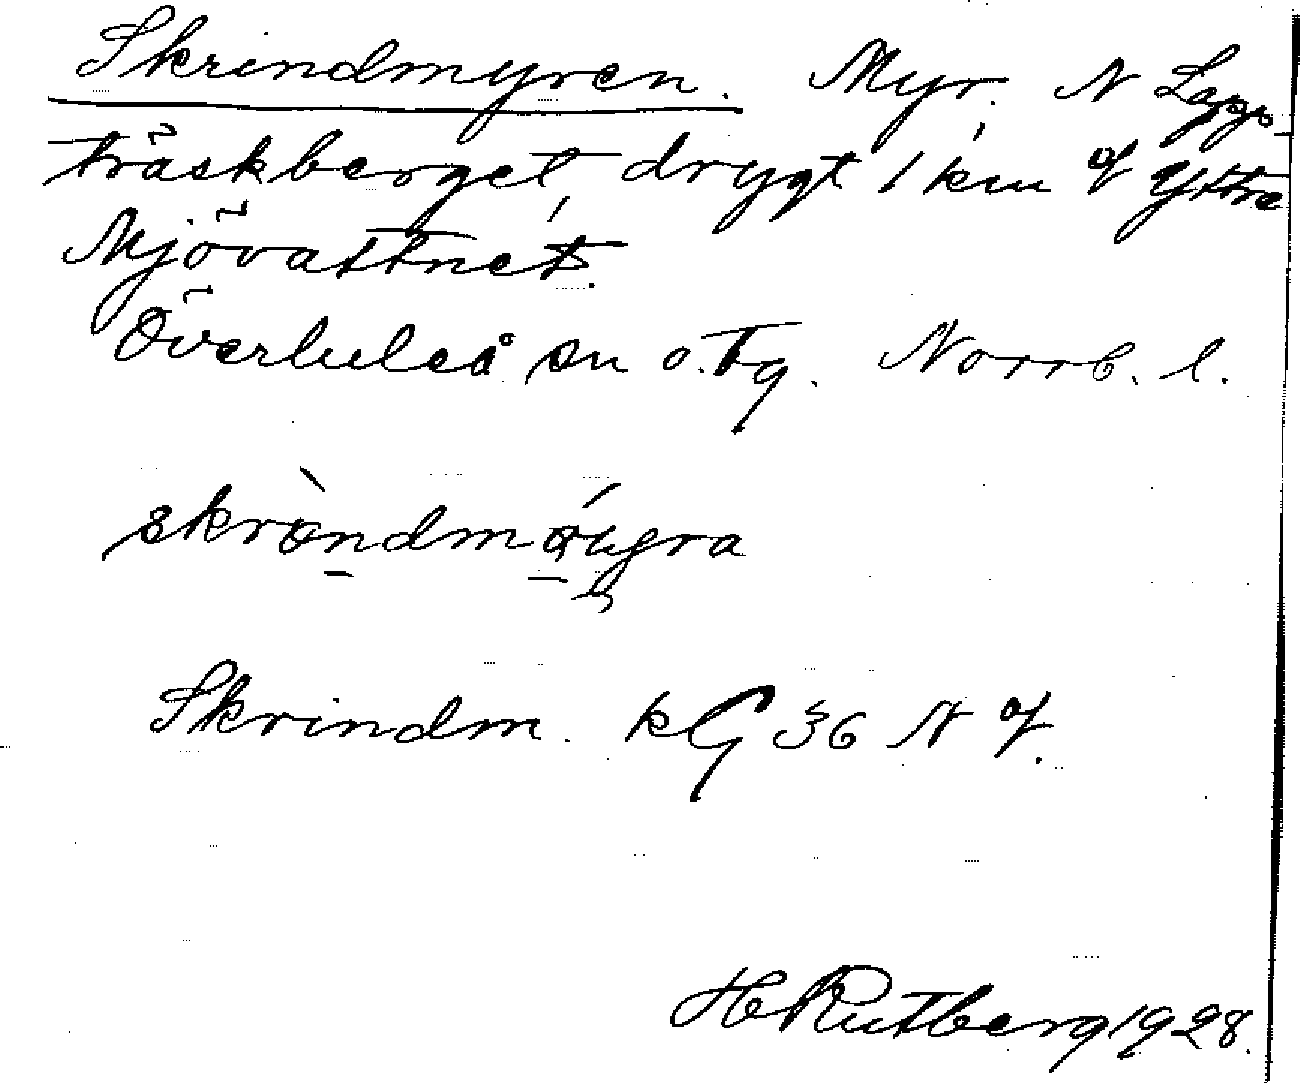 Skrindmyren. Myr. N Lapp-
träskberget, drygt 1 km of Yttre
Mjövattnet.
Överluleå sn o. tg. Norrb. l.
Skrindm. kG 36 N of.
H Rutberg 1928.